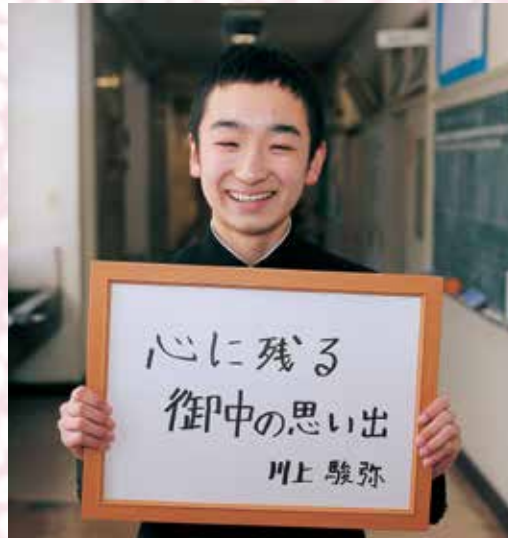 心に残る
御中の思い出
川上 駿弥